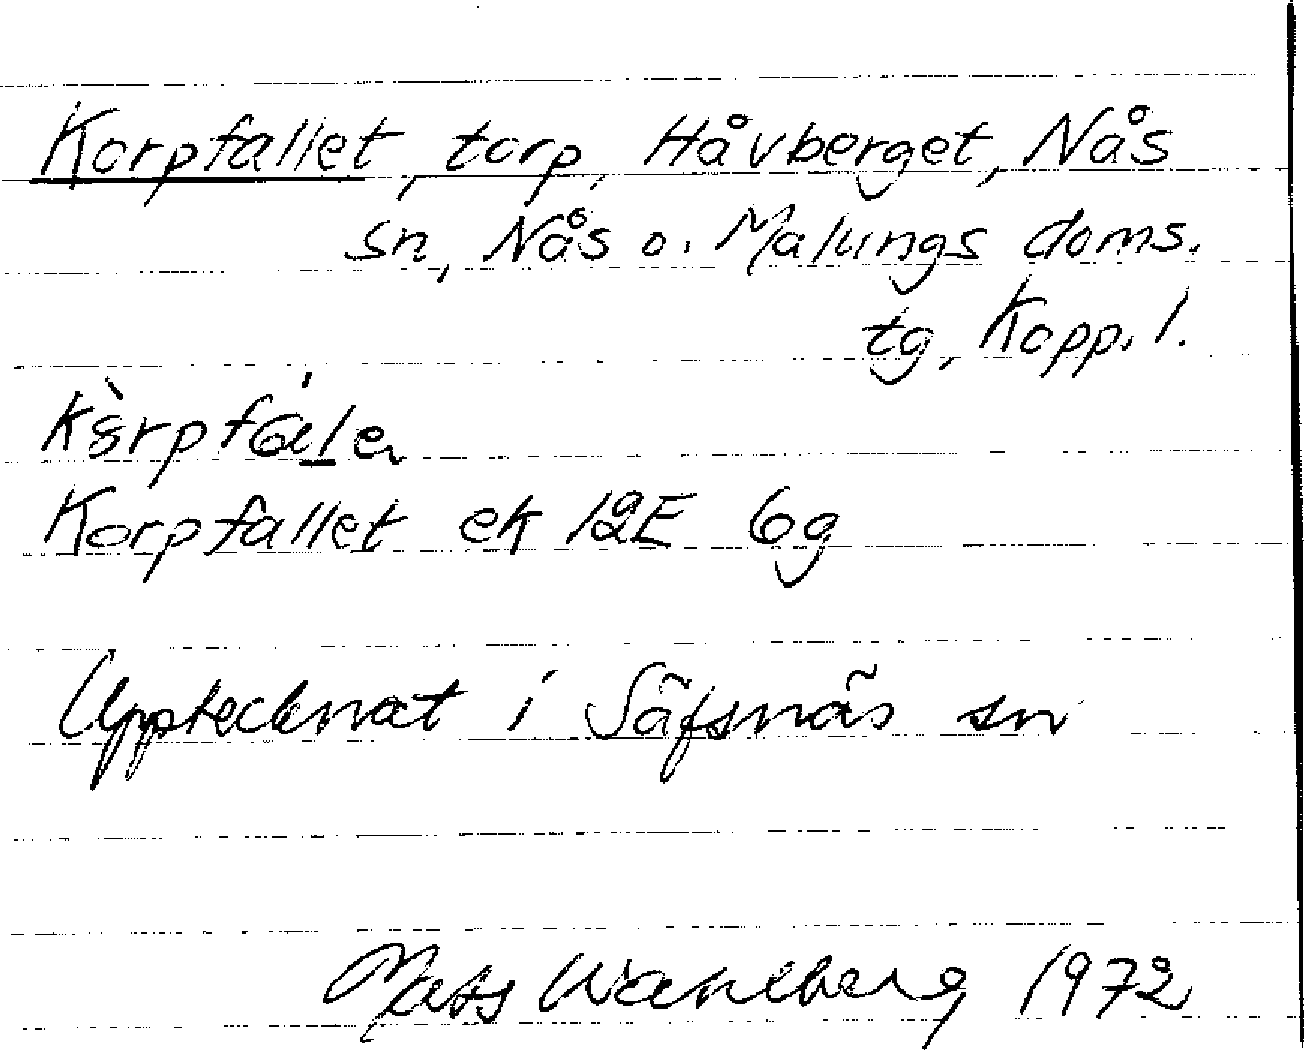 Korpfallet, torp, Håvberget, Nås
sn, Nås o. Malungs doms.
tg, Kopp. l.
Korpfallet ek 12E 6g
Upptecknat i Säfsnäs sn
Mats Wahlberg 1972